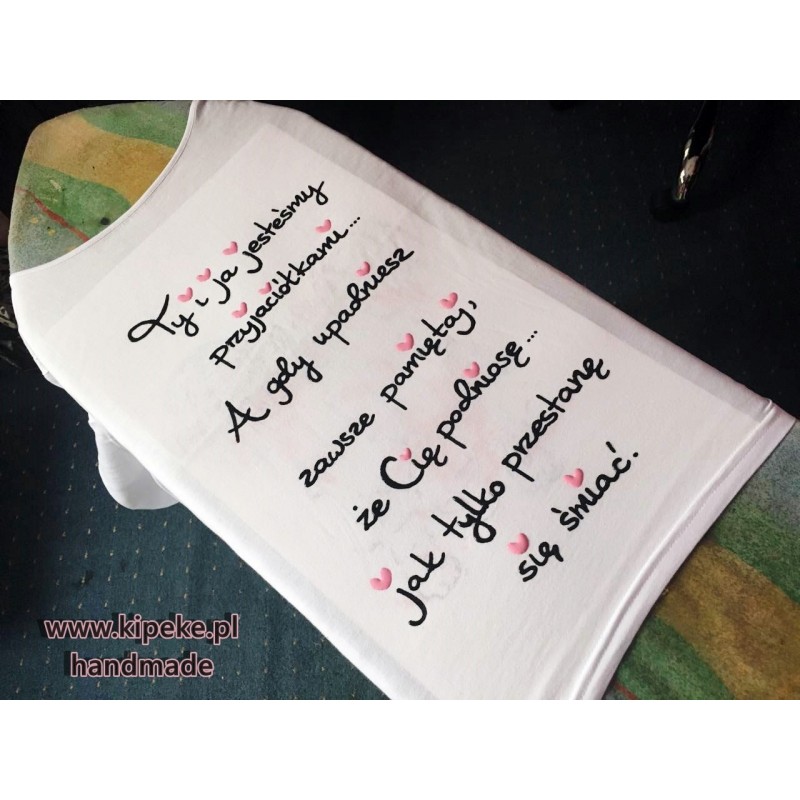 Ty i ja jesteśmy
przyjaciółkami...
A gdy upadniesz
zawsze pamiętaj,
że Cię podniosę...
jak tylko przestanę
się śmiać.
www.kipeke.pl
handmade